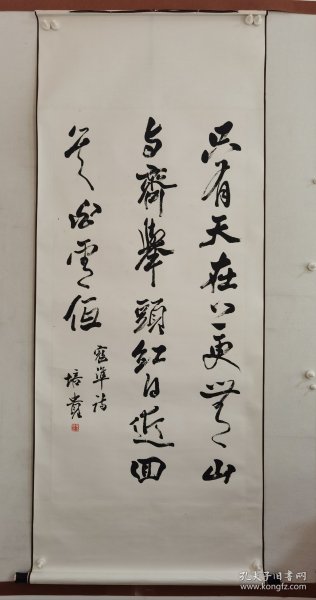 只有天在上更無山
与齊舉頭紅日近回
首白雲低
寇準诗
培貴
孔夫子旧书网
www.kongfz.com